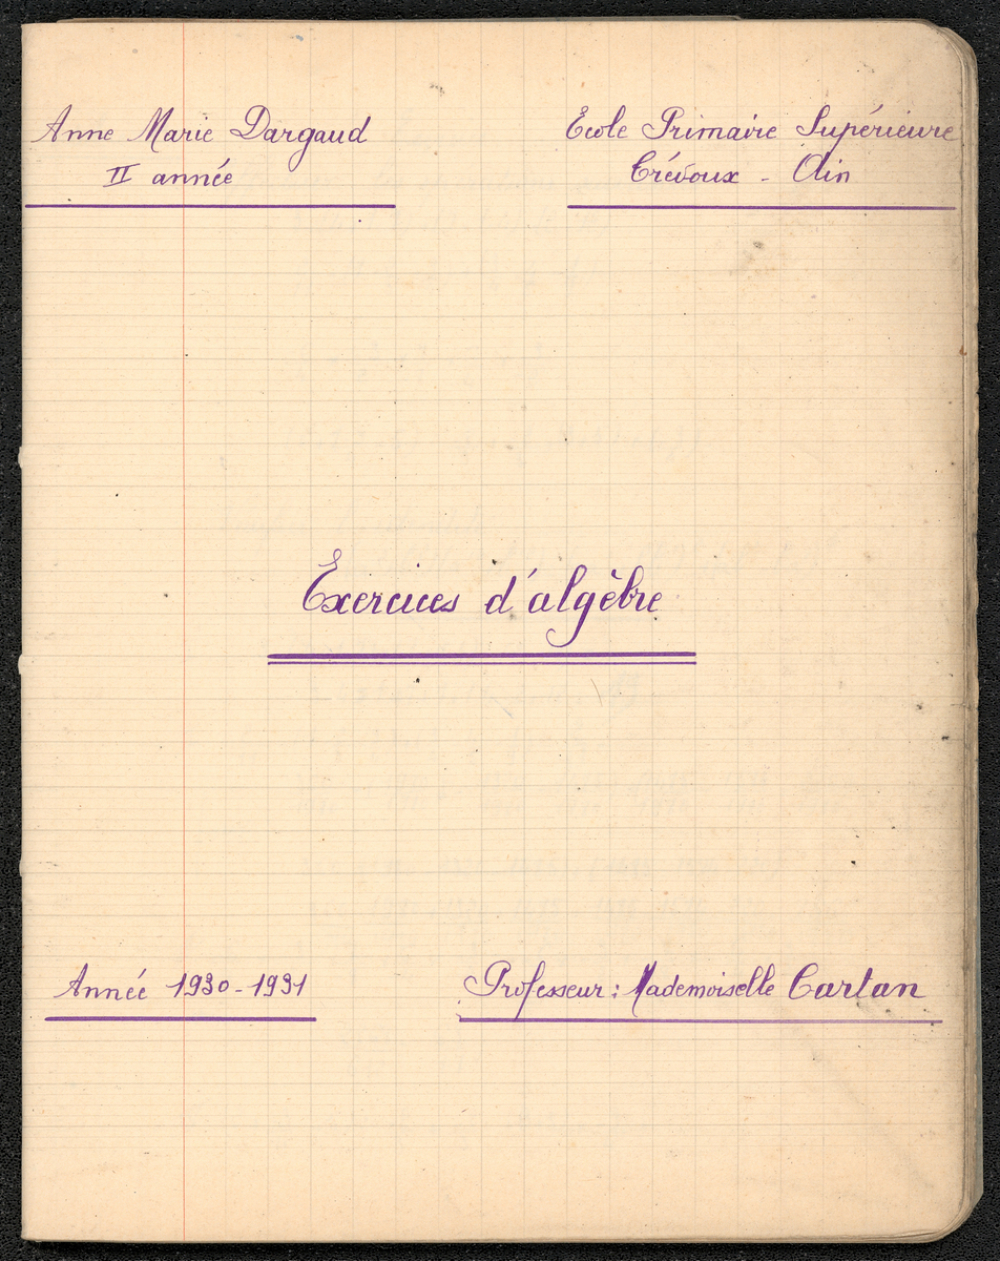 Anne Marie Dargaud
II année
École Primaire Supérieure
Trévoux - Ain
Exercices d'algèbre
Année 1930-1931
Professeur : Mademoiselle Cartan